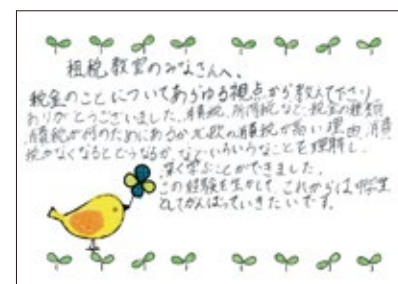 租税教室のみなさんへ。
税金のことについてあらゆる視点から教えて下さり
ありがとうございました。消費税、所得税など、税金の種類
消費税が何のためにあるか、北欧の消費税が高い理由、消費
税がなくなるとどうなるか、などいろいろなことを理解し、
深く学ぶことができました。
この経験を生かして、これからは中学生
としてがんばっていきたいです。